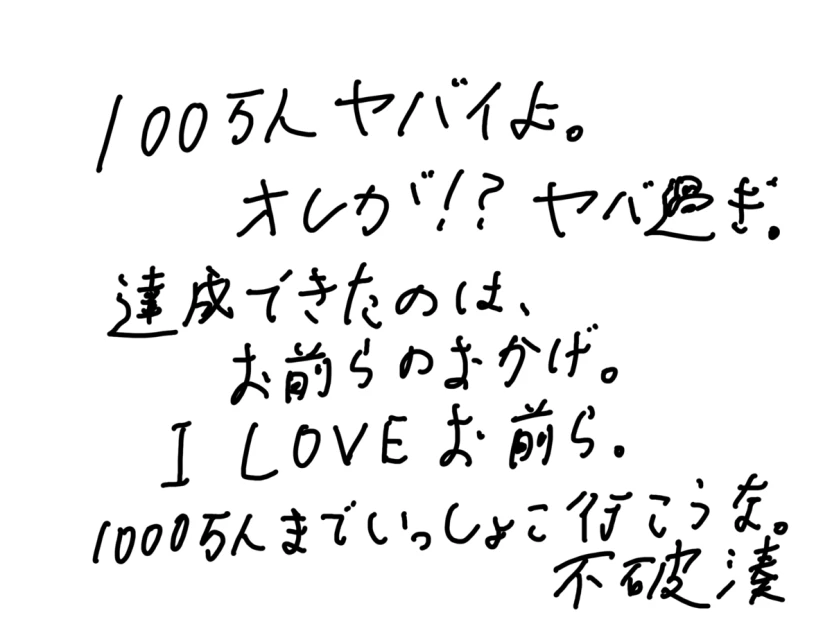 100万人ヤバイよ。
オレが!?ヤバ過ぎ.
達成できたのは、
お前らのおかげ。
I LOVEお前ら.
1000万人までいっしょこ行こうな。
不破湊